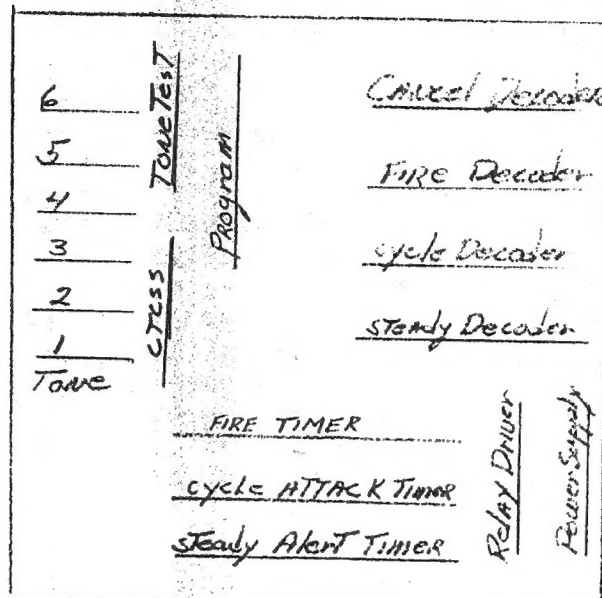 6
5
4
3
2
1
Tone
Tone Test
CTCSS
Program
Cancel Decoder
Fire Decoder
cycle Decoder
steady Decoder
FIRE TIMER
cycle ATTACK Timer
steady Alert Timer
Relay Driver
Power Supply